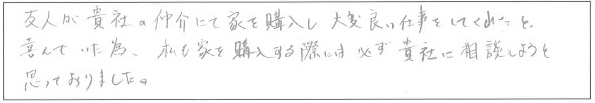 友人が貴社の仲介にて家を購入し大変良い仕事をしてくれたと
喜んでいた為、私も家を購入する際には必ず貴社に相談しようと
思っておりました。